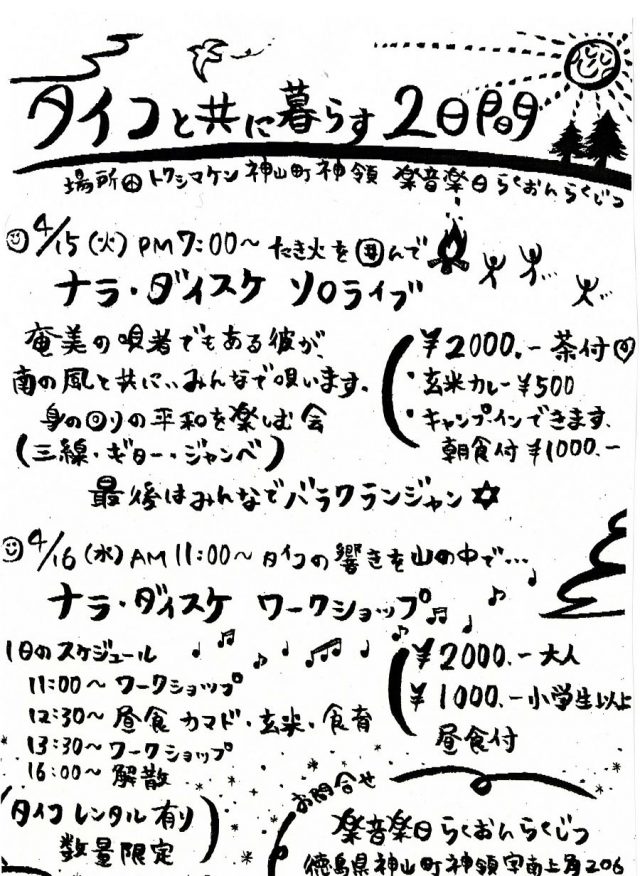 タイコと共に暮らす2日間
場所 トクシマケン 神山町神領 楽音楽日 らくおんらくじつ
4/15(火)PM7:00〜 たき火を囲んで
ナラ・ダイスケ ソロライブ
奄美の唄者でもある彼が、
南の風と共に、みんなで唄います。
身の回りの平和を楽しむ会
(三線・ギター・ジャンベ)
¥2000.- 茶付
・玄米カレー¥500
・キャンプインできます。
朝食付¥1000.-
最後はみんなでバラクランジャン
4/16(水)AM11:00〜 タイコの響きを山の中で…
ナラ・ダイスケ ワークショップ
1日のスケジュール
11:00〜 ワークショップ
12:30〜 昼食 カマド・玄米・食育
13:30〜 ワークショップ
16:00〜 解散
¥2000.- 大人
¥1000.- 小学生以上
昼食付
(タイコ レンタル有り
数量限定)
お問合せ
楽音楽日 らくおんらくじつ
徳島県神山町神領字南上角206